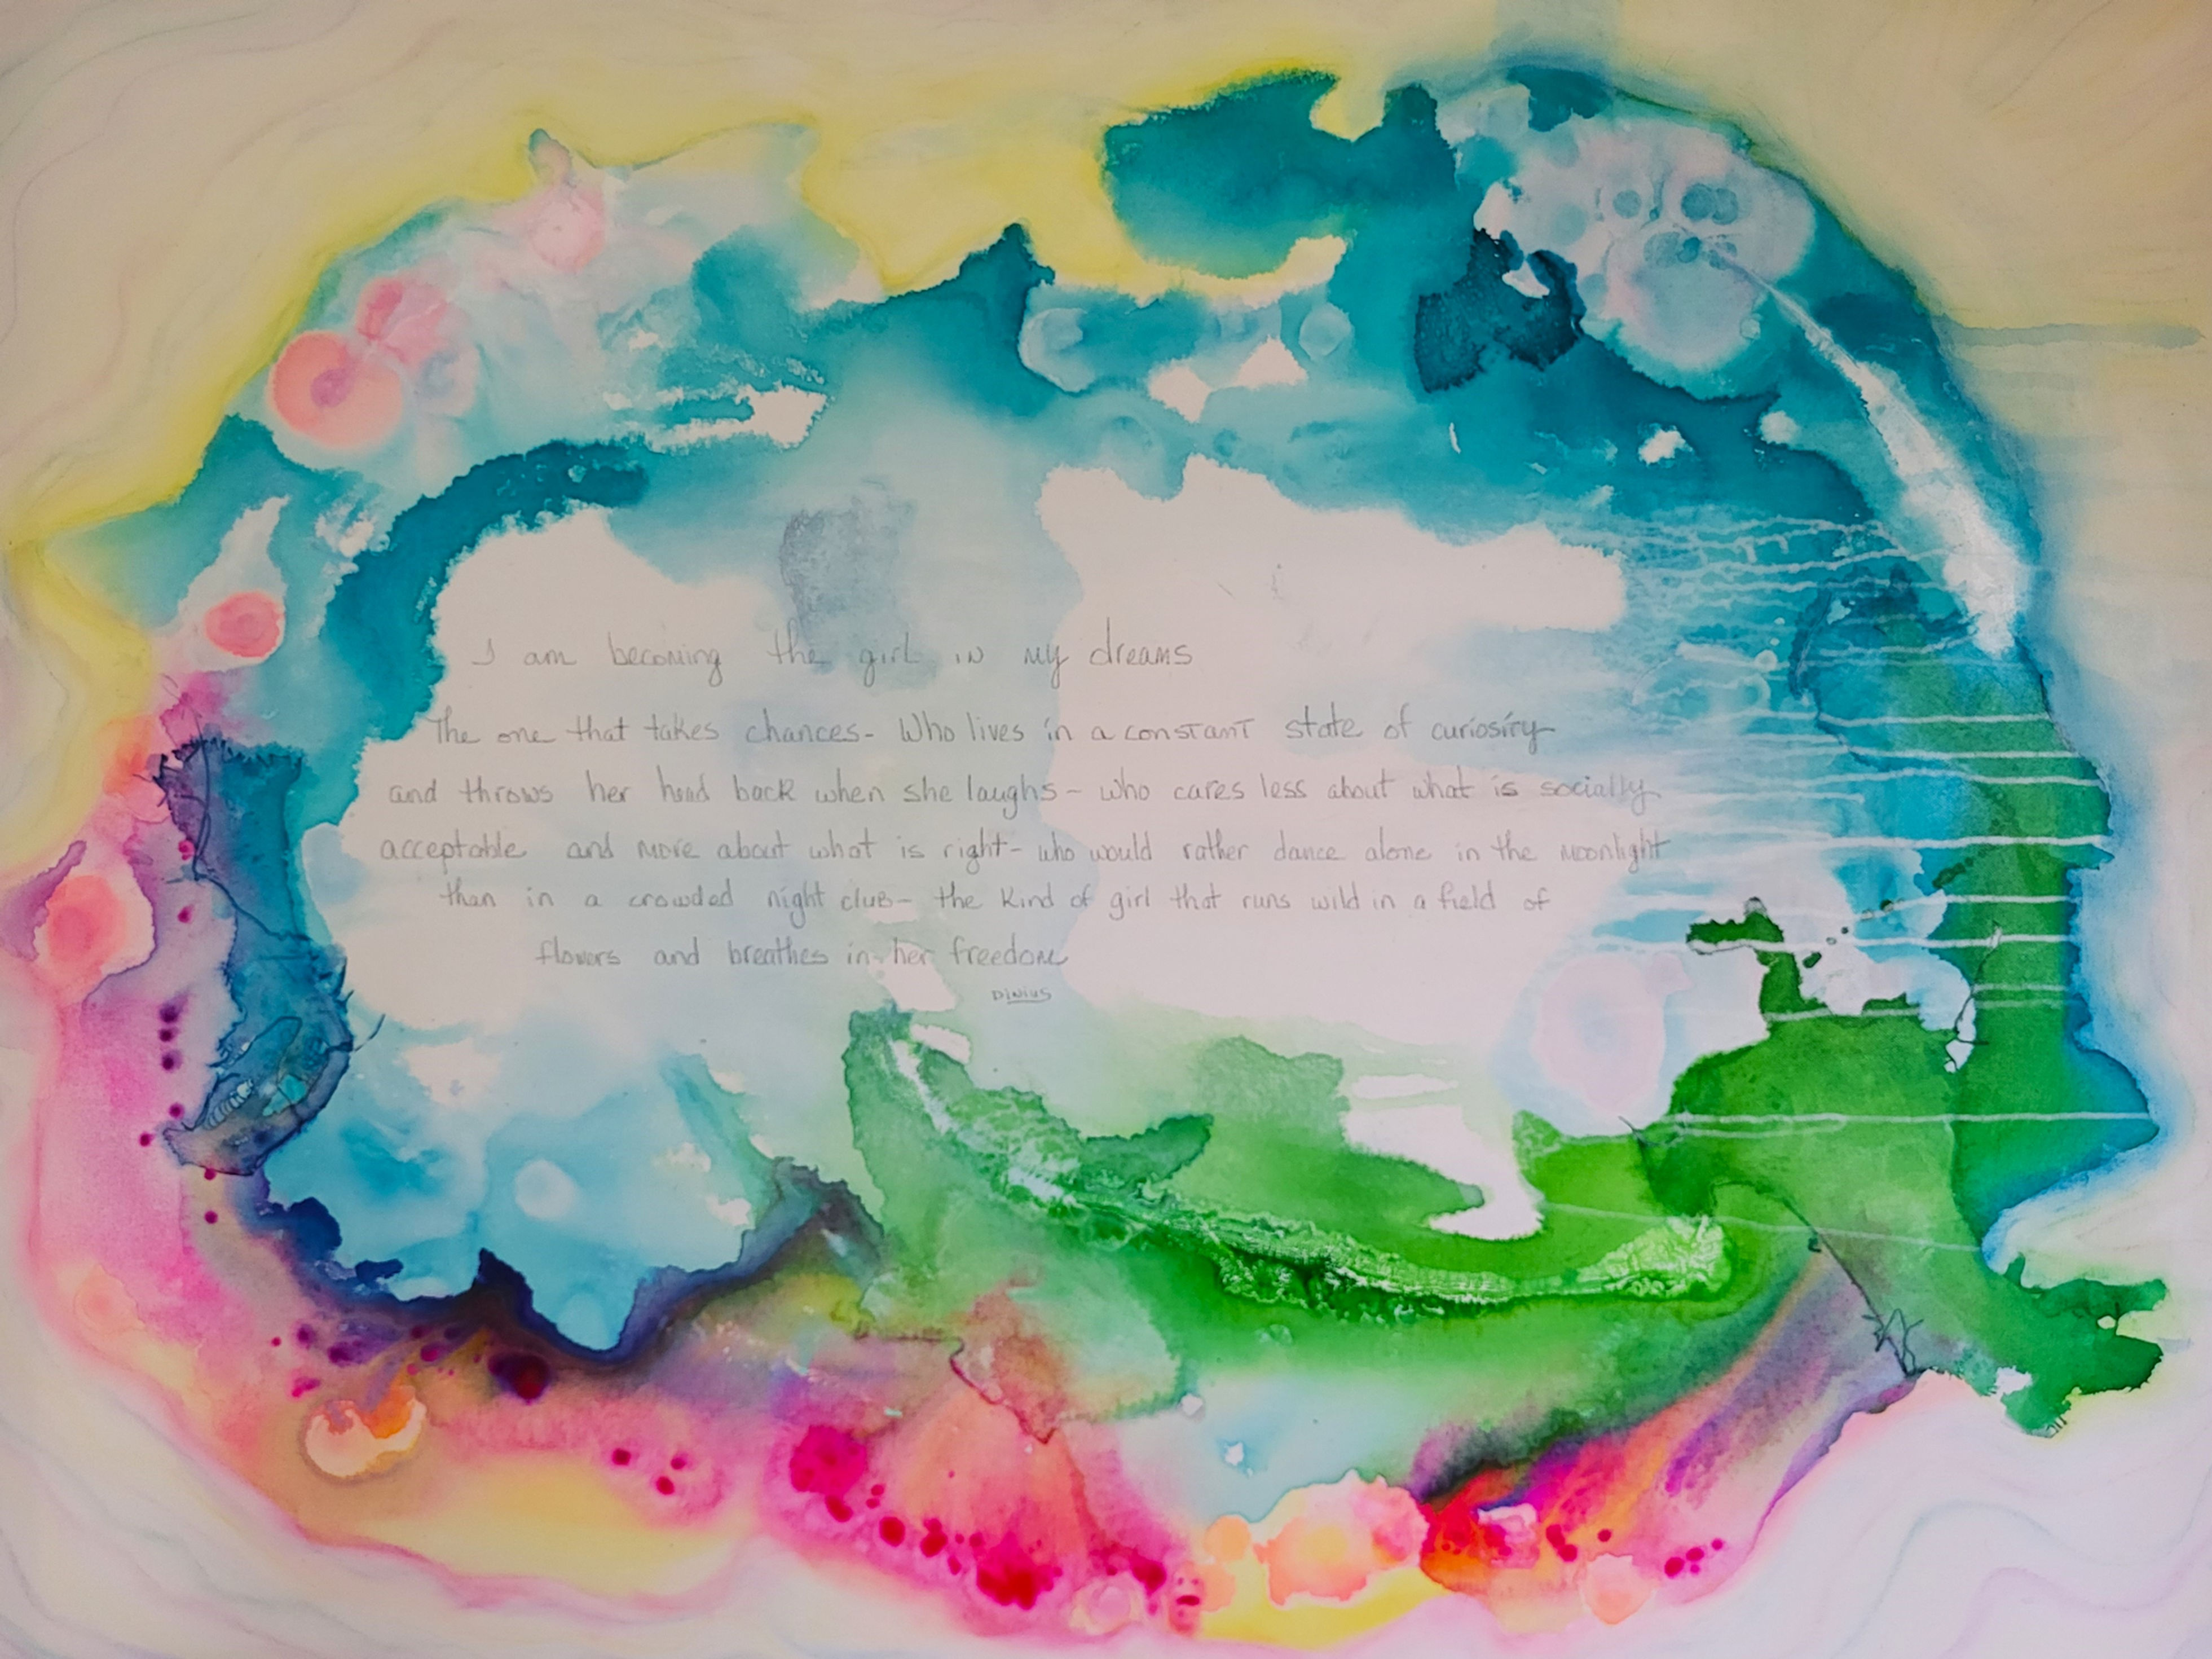 I am becoming the girl in my dreams
The one that takes chances- Who lives in a constant state of curiosity
and throws her head back when she laughs- who cares less about what is socially
acceptable and more about what is right- who would rather dance alone in the moonlight
than in a crowded night club- the kind of girl that runs wild in a field of
flowers and breathes in her freedom
Dinius